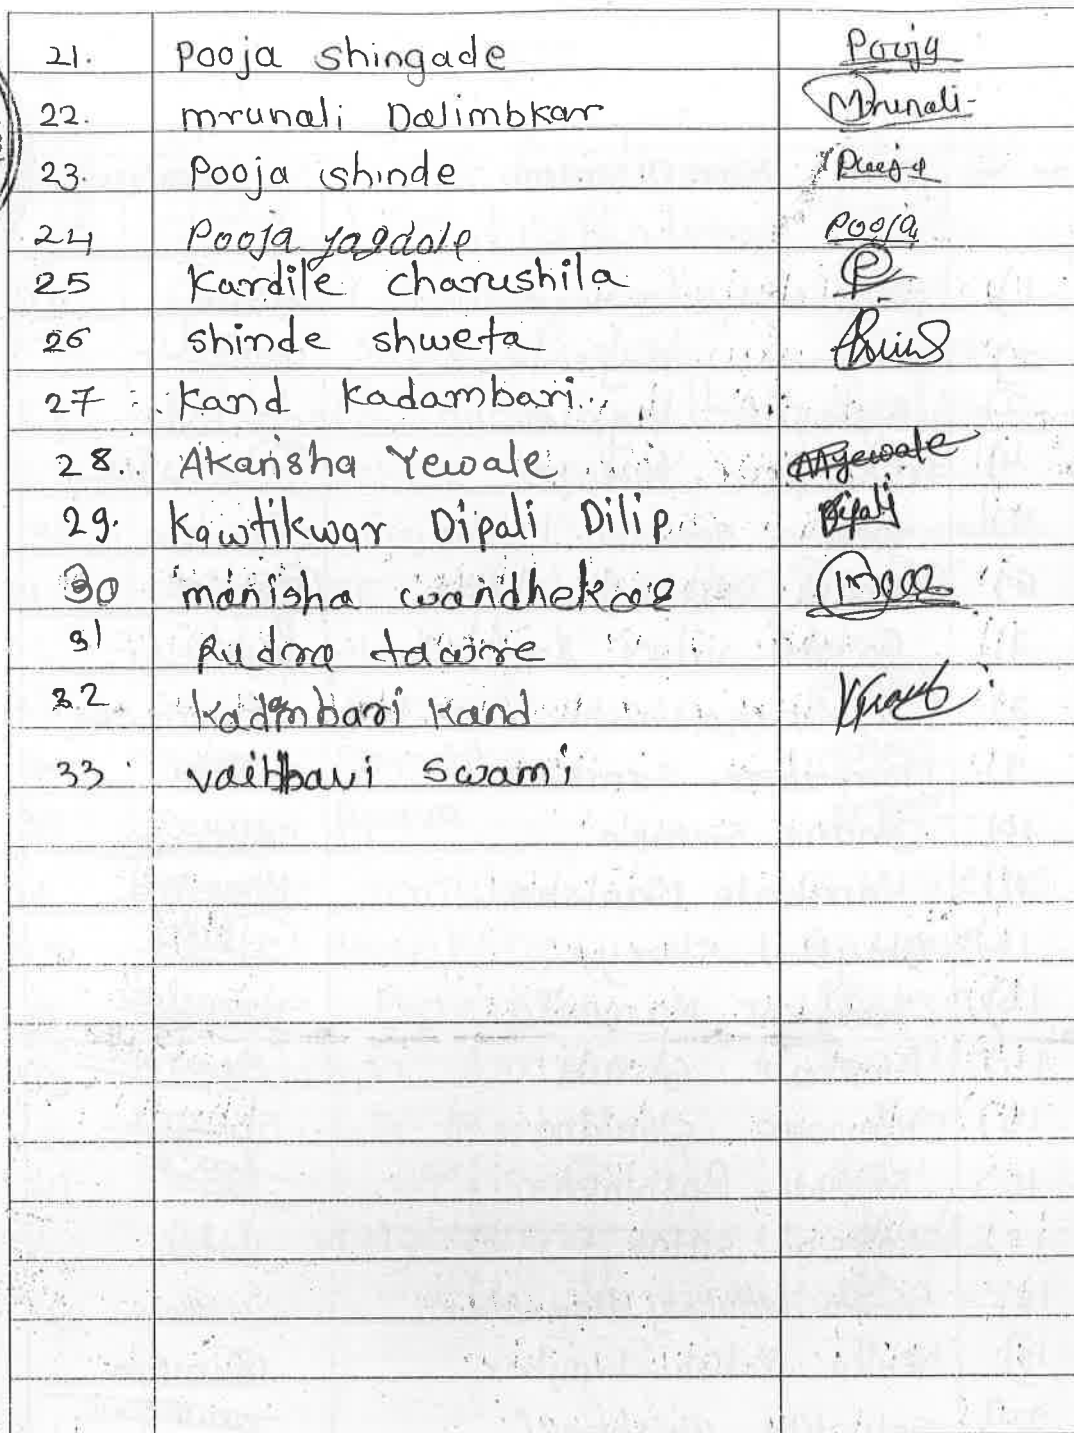 21. Pooja shingade Pooja
22. mrunali Dalimbkar Mrunali
23. Pooja shinde Pooja
24 Pooja Jagdale Pooja
25 Kardile charushila
26 shinde shweta
27 Kand Kadambari
28. Akansha Yewale Ayewale
29. Kawtikwar Dipali Dilip Dipali
30 manisha wandhekar
31 Rudra taware
32 Kadmbari Kand
33 vaibhavi Swami